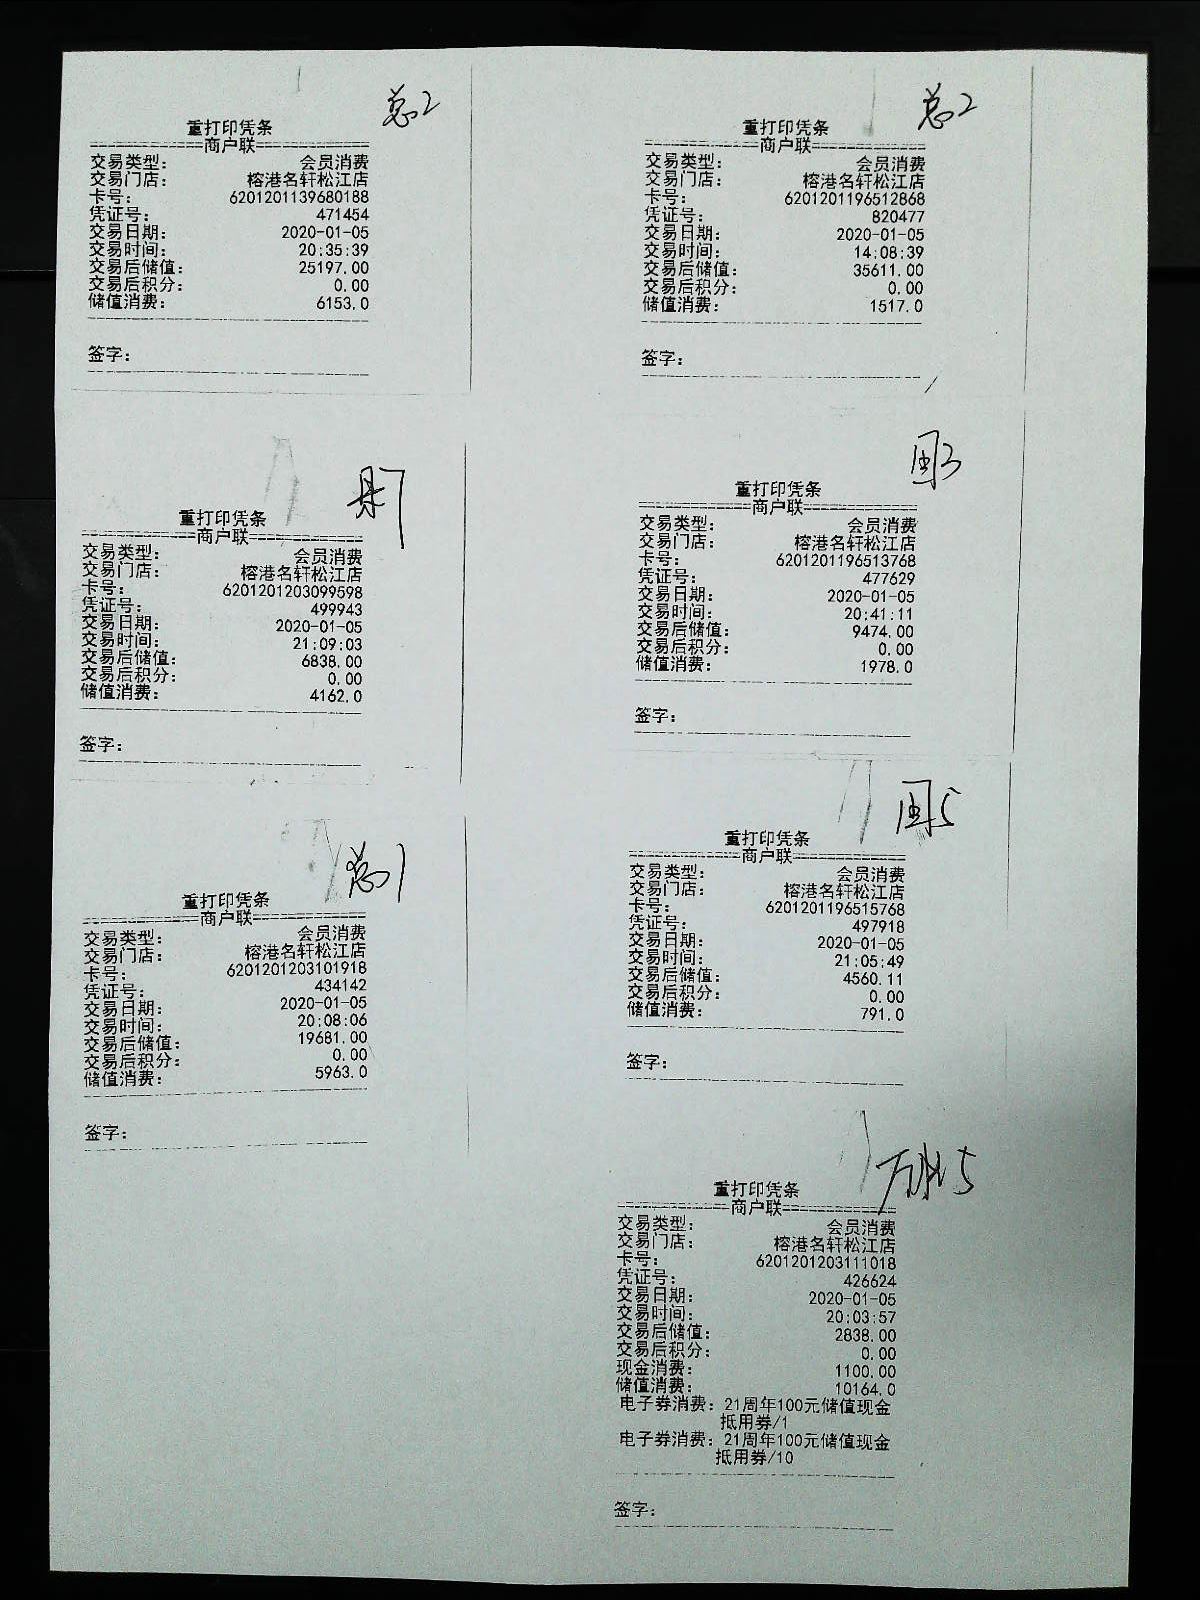 总2
重打印凭条
==========商户联==========
交易类型： 会员消费
交易门店： 榕港名轩松江店
卡号： 6201201139680188
凭证号： 471454
交易日期： 2020-01-05
交易时间： 20:35:39
交易后储值： 25197.00
交易后积分： 0.00
储值消费： 6153.0
签字：
总2
重打印凭条
==========商户联==========
交易类型： 会员消费
交易门店： 榕港名轩松江店
卡号： 6201201196512868
凭证号： 820477
交易日期： 2020-01-05
交易时间： 14:08:39
交易后储值： 35611.00
交易后积分： 0.00
储值消费： 1517.0
签字：
重打印凭条
==========商户联==========
交易类型： 会员消费
交易门店： 榕港名轩松江店
卡号： 6201201203099598
凭证号： 499943
交易日期： 2020-01-05
交易时间： 21:09:03
交易后储值： 6838.00
交易后积分： 0.00
储值消费： 4162.0
签字：
重打印凭条
==========商户联==========
交易类型： 会员消费
交易门店： 榕港名轩松江店
卡号： 6201201196513768
凭证号： 477629
交易日期： 2020-01-05
交易时间： 20:41:11
交易后储值： 9474.00
交易后积分： 0.00
储值消费： 1978.0
签字：
总1
重打印凭条
==========商户联==========
交易类型： 会员消费
交易门店： 榕港名轩松江店
卡号： 6201201203101918
凭证号： 434142
交易日期： 2020-01-05
交易时间： 20:08:06
交易后储值： 19681.00
交易后积分： 0.00
储值消费： 5963.0
签字：
重打印凭条
==========商户联==========
交易类型： 会员消费
交易门店： 榕港名轩松江店
卡号： 6201201196515768
凭证号： 497918
交易日期： 2020-01-05
交易时间： 21:05:49
交易后储值： 4560.11
交易后积分： 0.00
储值消费： 791.0
签字：
重打印凭条
==========商户联==========
交易类型： 会员消费
交易门店： 榕港名轩松江店
卡号： 6201201203111018
凭证号： 426624
交易日期： 2020-01-05
交易时间： 20:03:57
交易后储值： 2838.00
交易后积分： 0.00
现金消费： 1100.00
储值消费： 10164.0
电子券消费：21周年100元储值现金
抵用券/1
电子券消费：21周年100元储值现金
抵用券/10
签字：